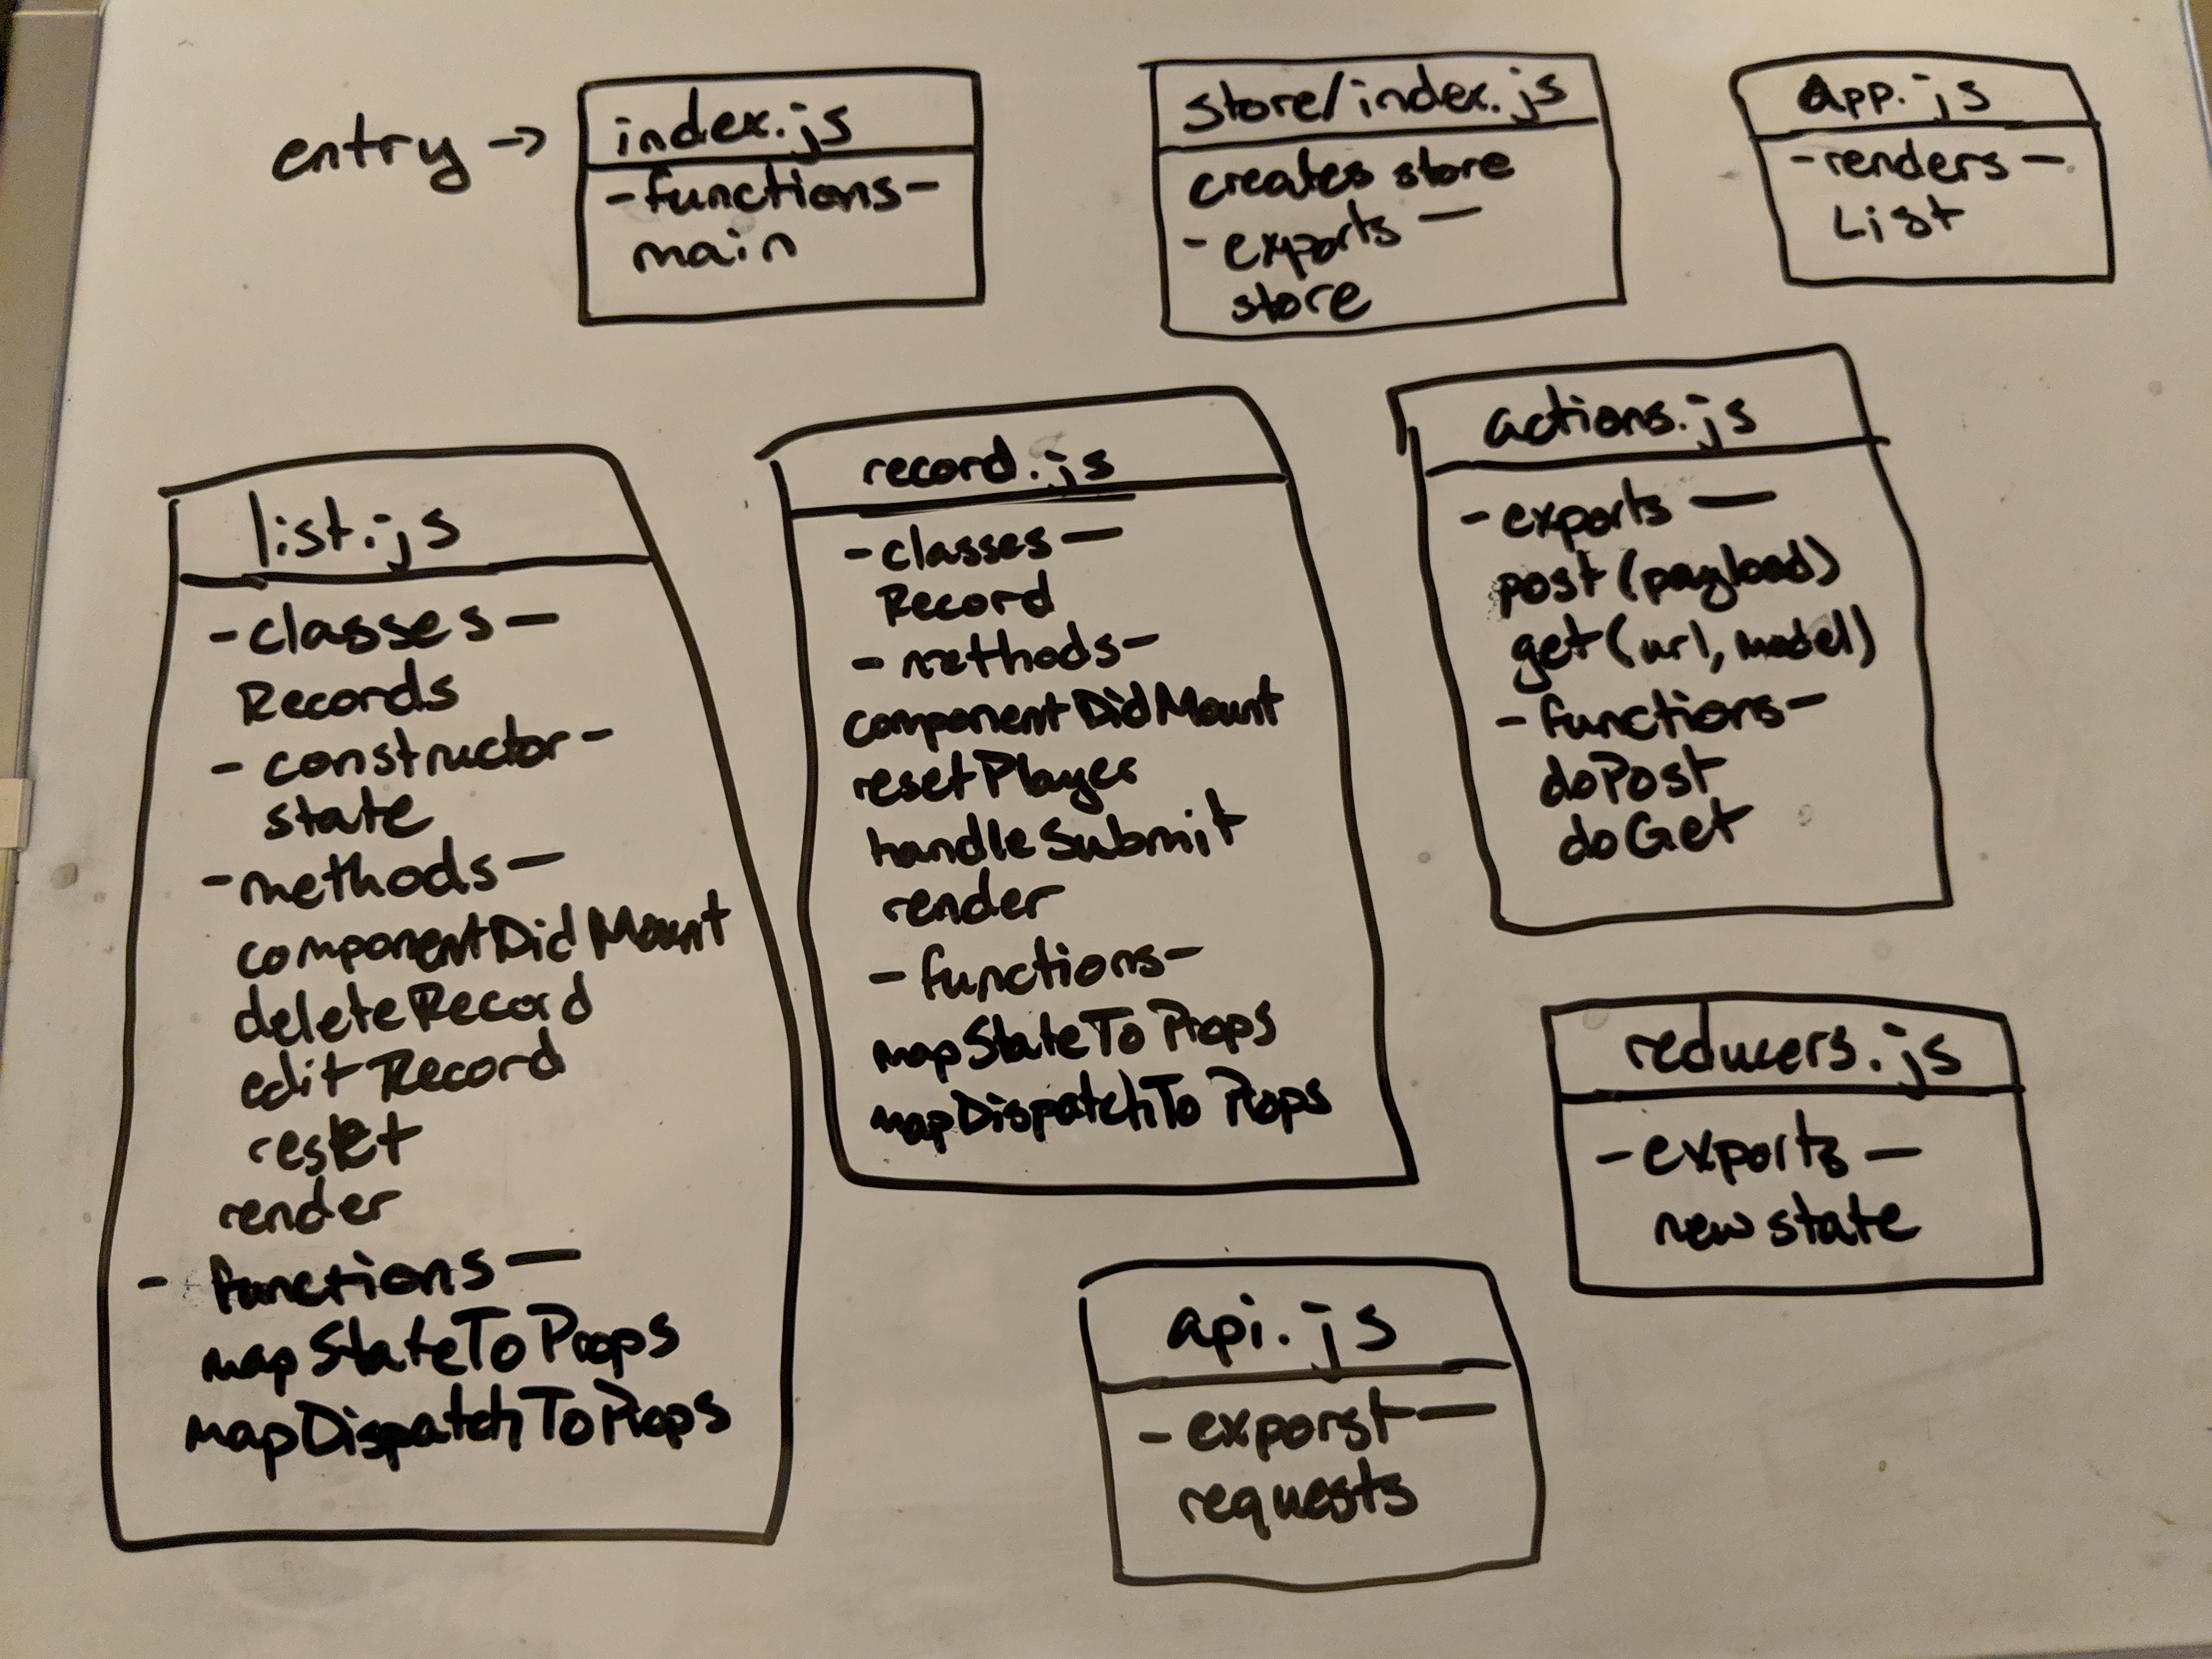 entry →
index.js
- functions -
main
store/index.js
creates store
- exports -
store
app.js
- renders -
List
list.js
- classes -
Records
- constructor -
state
- methods -
componentDidMount
deleteRecord
editRecord
reset
render
- functions -
mapStateToProps
mapDispatchToProps
record.js
- classes -
Record
- methods -
componentDidMount
resetPlayer
handleSubmit
render
- functions -
mapStateToProps
mapDispatchToProps
actions.js
- exports -
post(payload)
get(url, model)
- functions -
doPost
doGet
reducers.js
- exports -
new state
api.js
- exporst -
requests